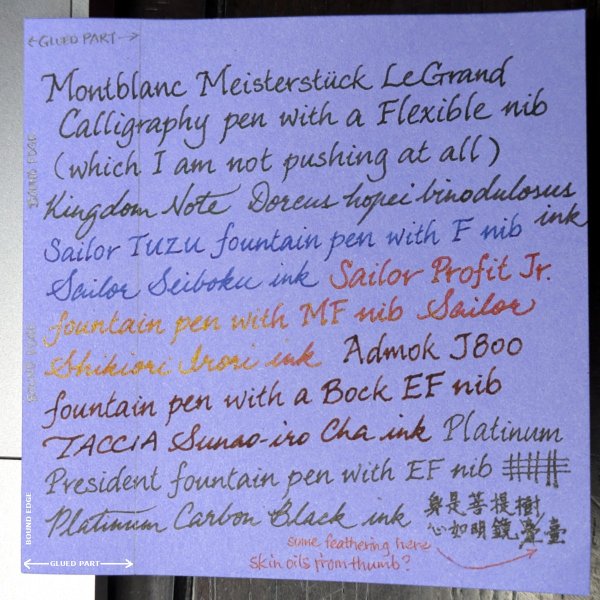 ←GLUED PART→
Montblanc Meisterstück LeGrand
Calligraphy pen with a Flexible nib
(which I am not pushing at all)
Kingdom Note Dorcus hopei binodulosus
ink
Sailor TUZU fountain pen with F nib
Sailor Seiboku ink Sailor Profit Jr.
fountain pen with MF nib Sailor
Shikiori Irori ink Admok J800
fountain pen with a Bock EF nib
TACCIA Sunao-iro Cha ink Platinum
President fountain pen with EF nib
Platinum Carbon Black ink 身是菩提樹
心如明鏡臺
some feathering here
skin oils from thumb?
BOUND EDGE
BOUND EDGE
BOUND EDGE
←GLUED PART→